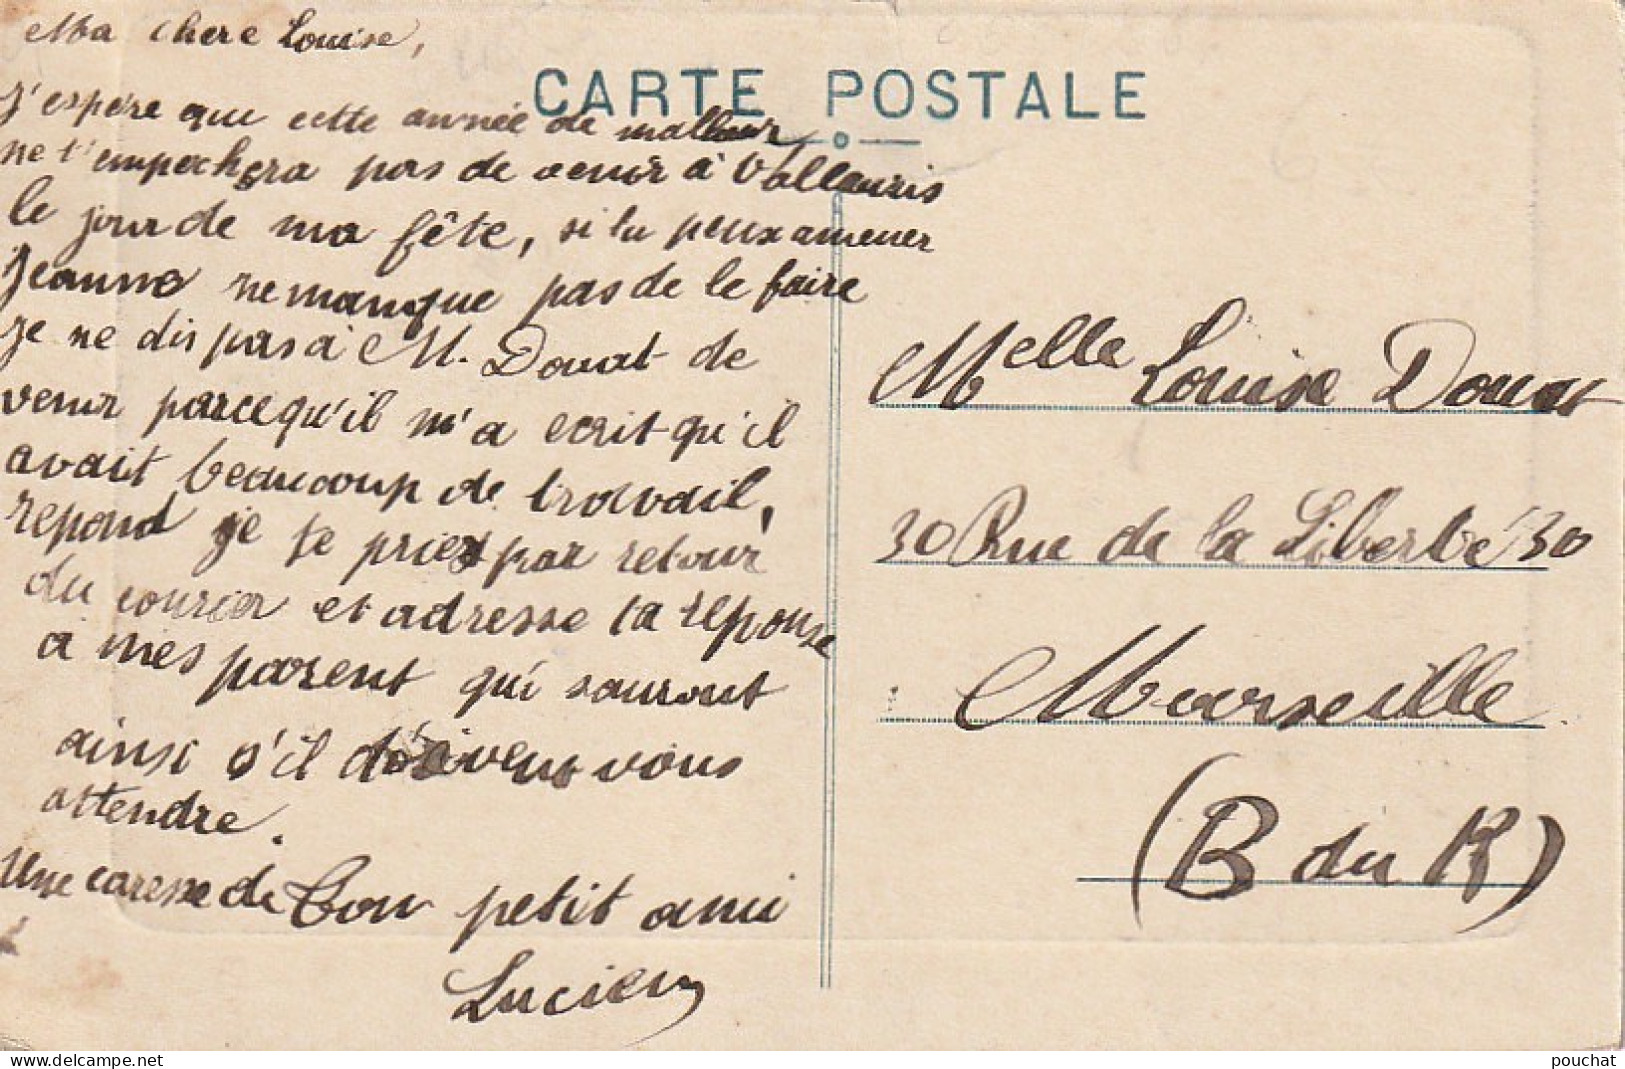 Ma chere Louise,
CARTE POSTALE
J'espère que cette année de malheur
ne t'empechera pas de venir à Vallauris
le jour de ma fête, si tu peux amener
Jeanne ne manque pas de le faire
Je ne dis pas à M. Douat de
venir parcequ'il m'a ecrit qu'il
avait beaucoup de travail,
repond je te prie par retour
du courier et adresse ta reponse
a mes parent qui sauront
ainsi s'il doivent vous
attendre.
Une caresse de ton petit ami
Lucien
Melle Louise Douat
30 Rue de la Liberté 30
Marseille
(B du R)
pouchat
delcampe.net